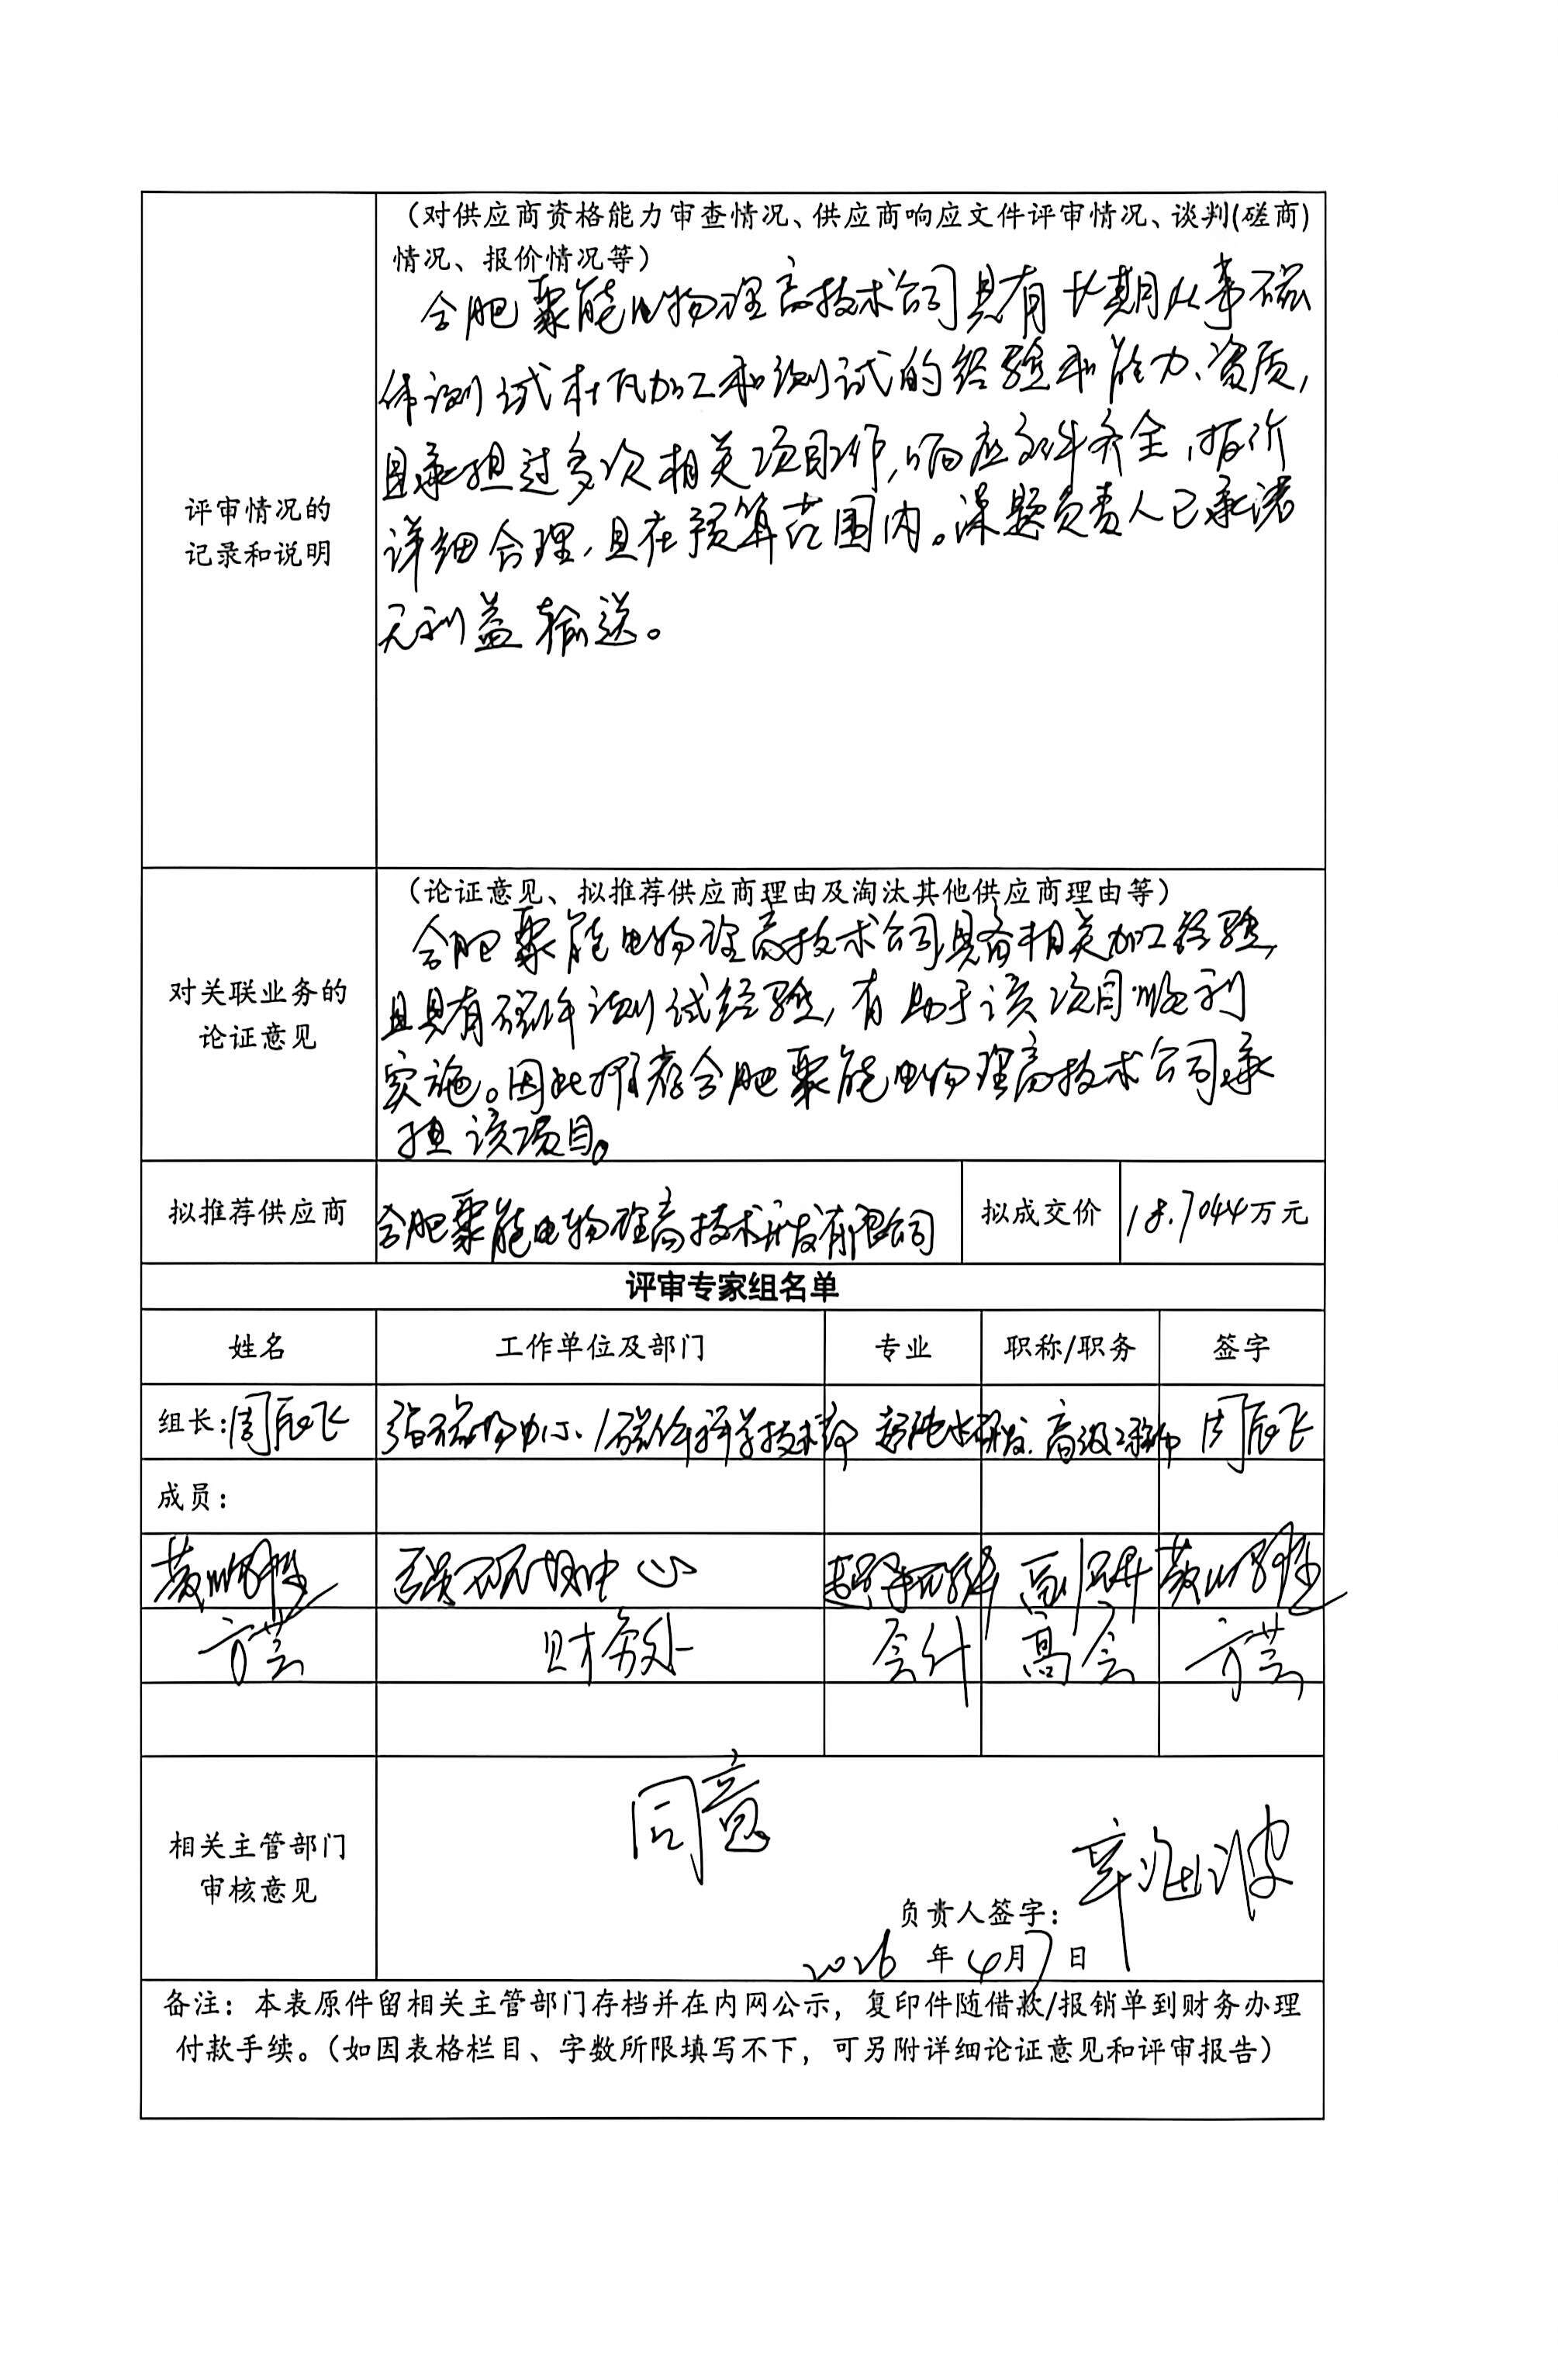 (对供应商资格能力审查情况、供应商响应文件评审情况、谈判(磋商)
情况、报价情况等)
合肥聚能电物理高技术公司具有长期从事磁
体测试杜瓦加工和测试的经验和能力、资质,
且承担过多次相关项目工作,响应文件齐全,报价
详细合理,且在预算范围内。课题负责人已承诺
无利益输送。
评审情况的
记录和说明
(论证意见、拟推荐供应商理由及淘汰其他供应商理由等)
合肥聚能电物理高技术公司具备相关加工经验,
且具有磁体测试经验,有助于该项目顺利
实施。因此推荐合肥聚能电物理高技术公司承
担该项目。
对关联业务的
论证意见
拟推荐供应商 合肥聚能电物理高技术开发有限公司 拟成交价 18.7044万元
评审专家组名单
姓名 工作单位及部门 专业 职称/职务 签字
组长:周 飞 强磁场中心、磁体科学技术部 研发 高级工程师 周 飞
成员:
强磁场中心 高工
方芸 财务处 会计 高会 方芸
同意
相关主管部门
审核意见
负责人签字: 波
2026年4月7日
备注:本表原件留相关主管部门存档并在内网公示,复印件随借款/报销单到财务办理
付款手续。(如因表格栏目、字数所限填写不下,可另附详细论证意见和评审报告)